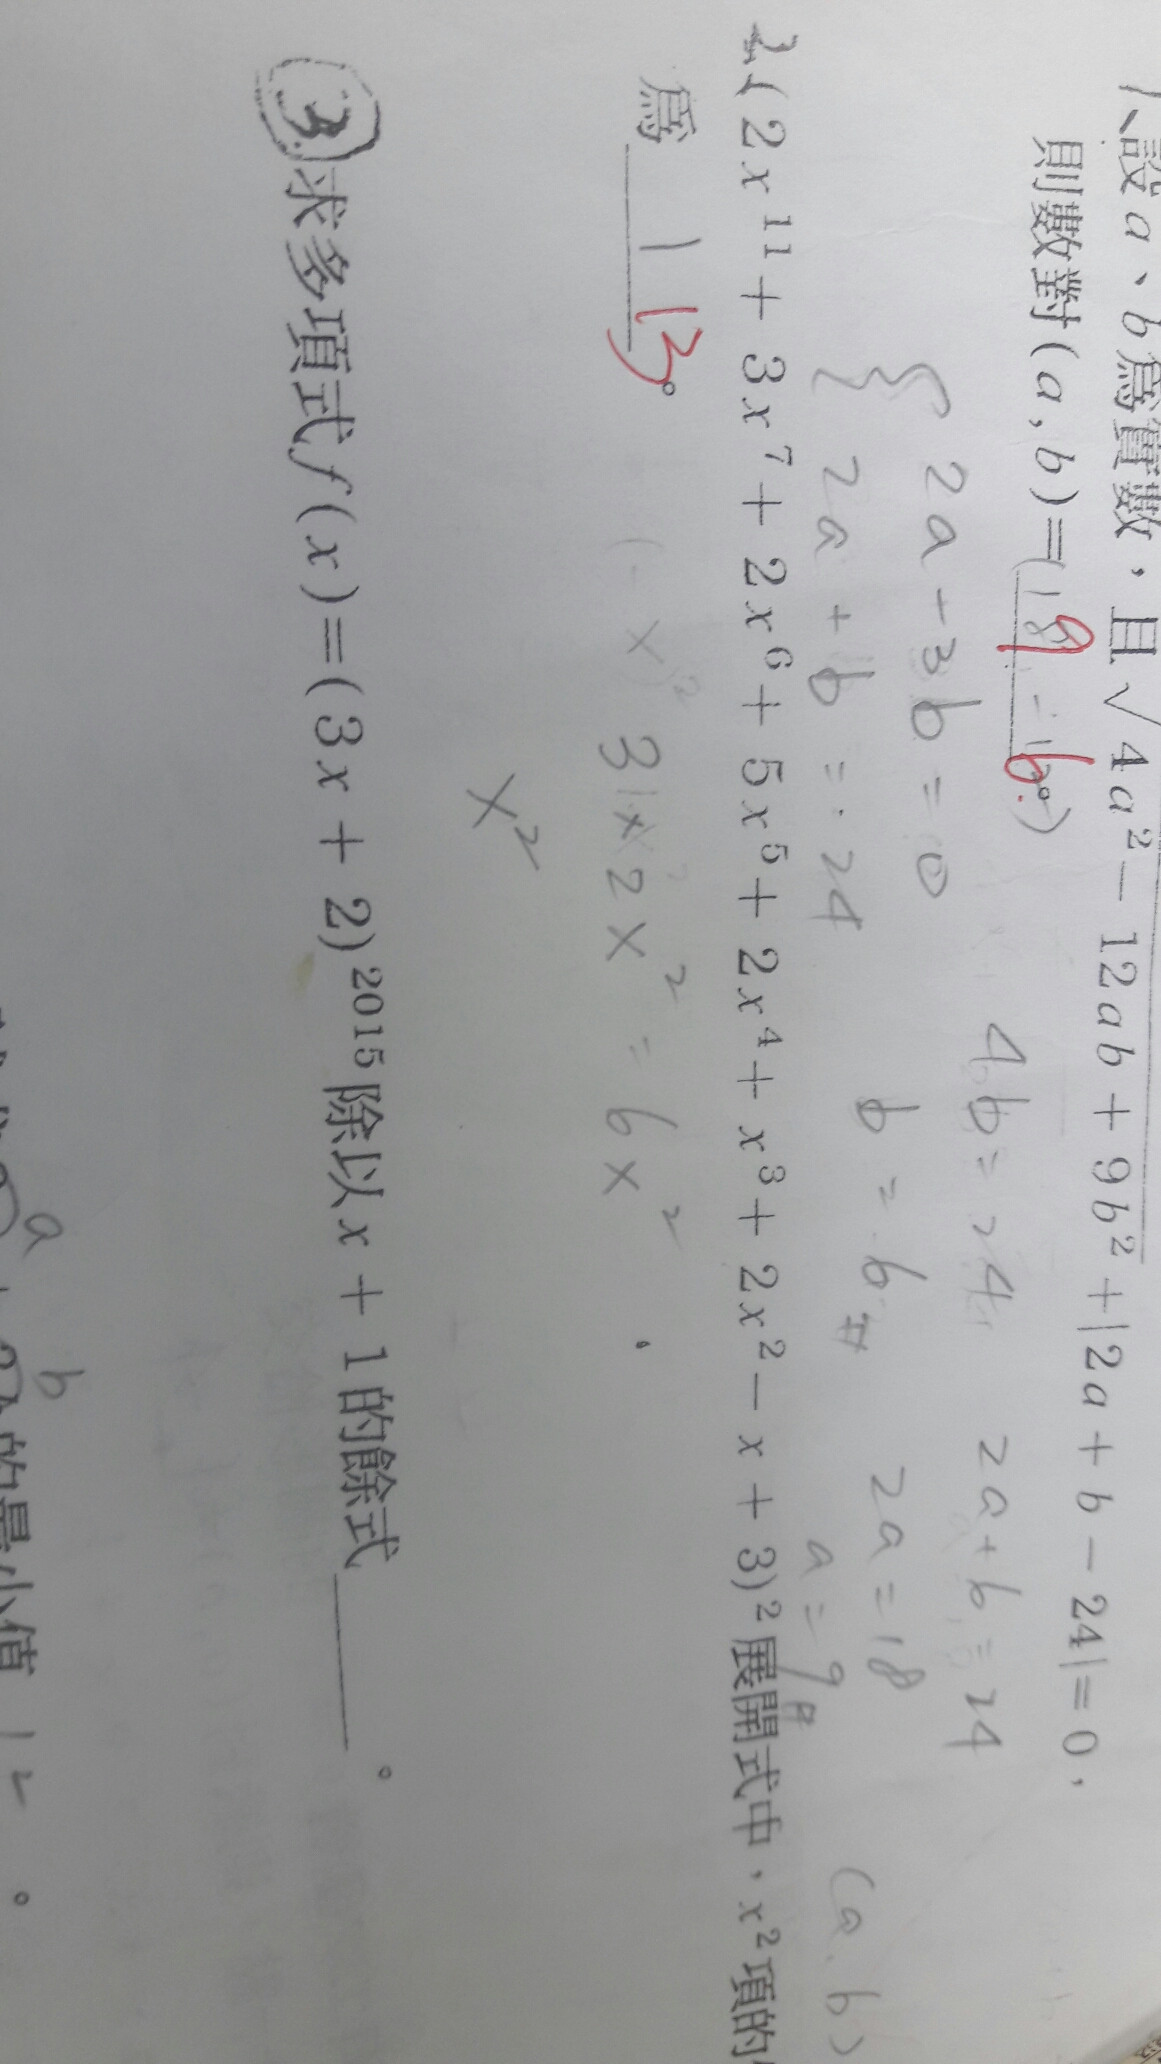 1、設a、b為實數，且√4a²－12ab＋9b²＋|2a＋b－24|＝0，
則數對(a,b)＝(9 6。)
2a-3b=0 4b=24 2a+b=24
2a+b=24 b=6# 2a=18 (a.b)
a=9#
2.(2x¹¹＋3x⁷＋2x⁶＋5x⁵＋2x⁴＋x³＋2x²－x＋3)²展開式中，x²項的
為 13。
(-x)² 3|x2x²=6x²
x²
3.求多項式f(x)＝(3x＋2)²⁰¹⁵除以x＋1的餘式______。
a b
的最小值 12 。